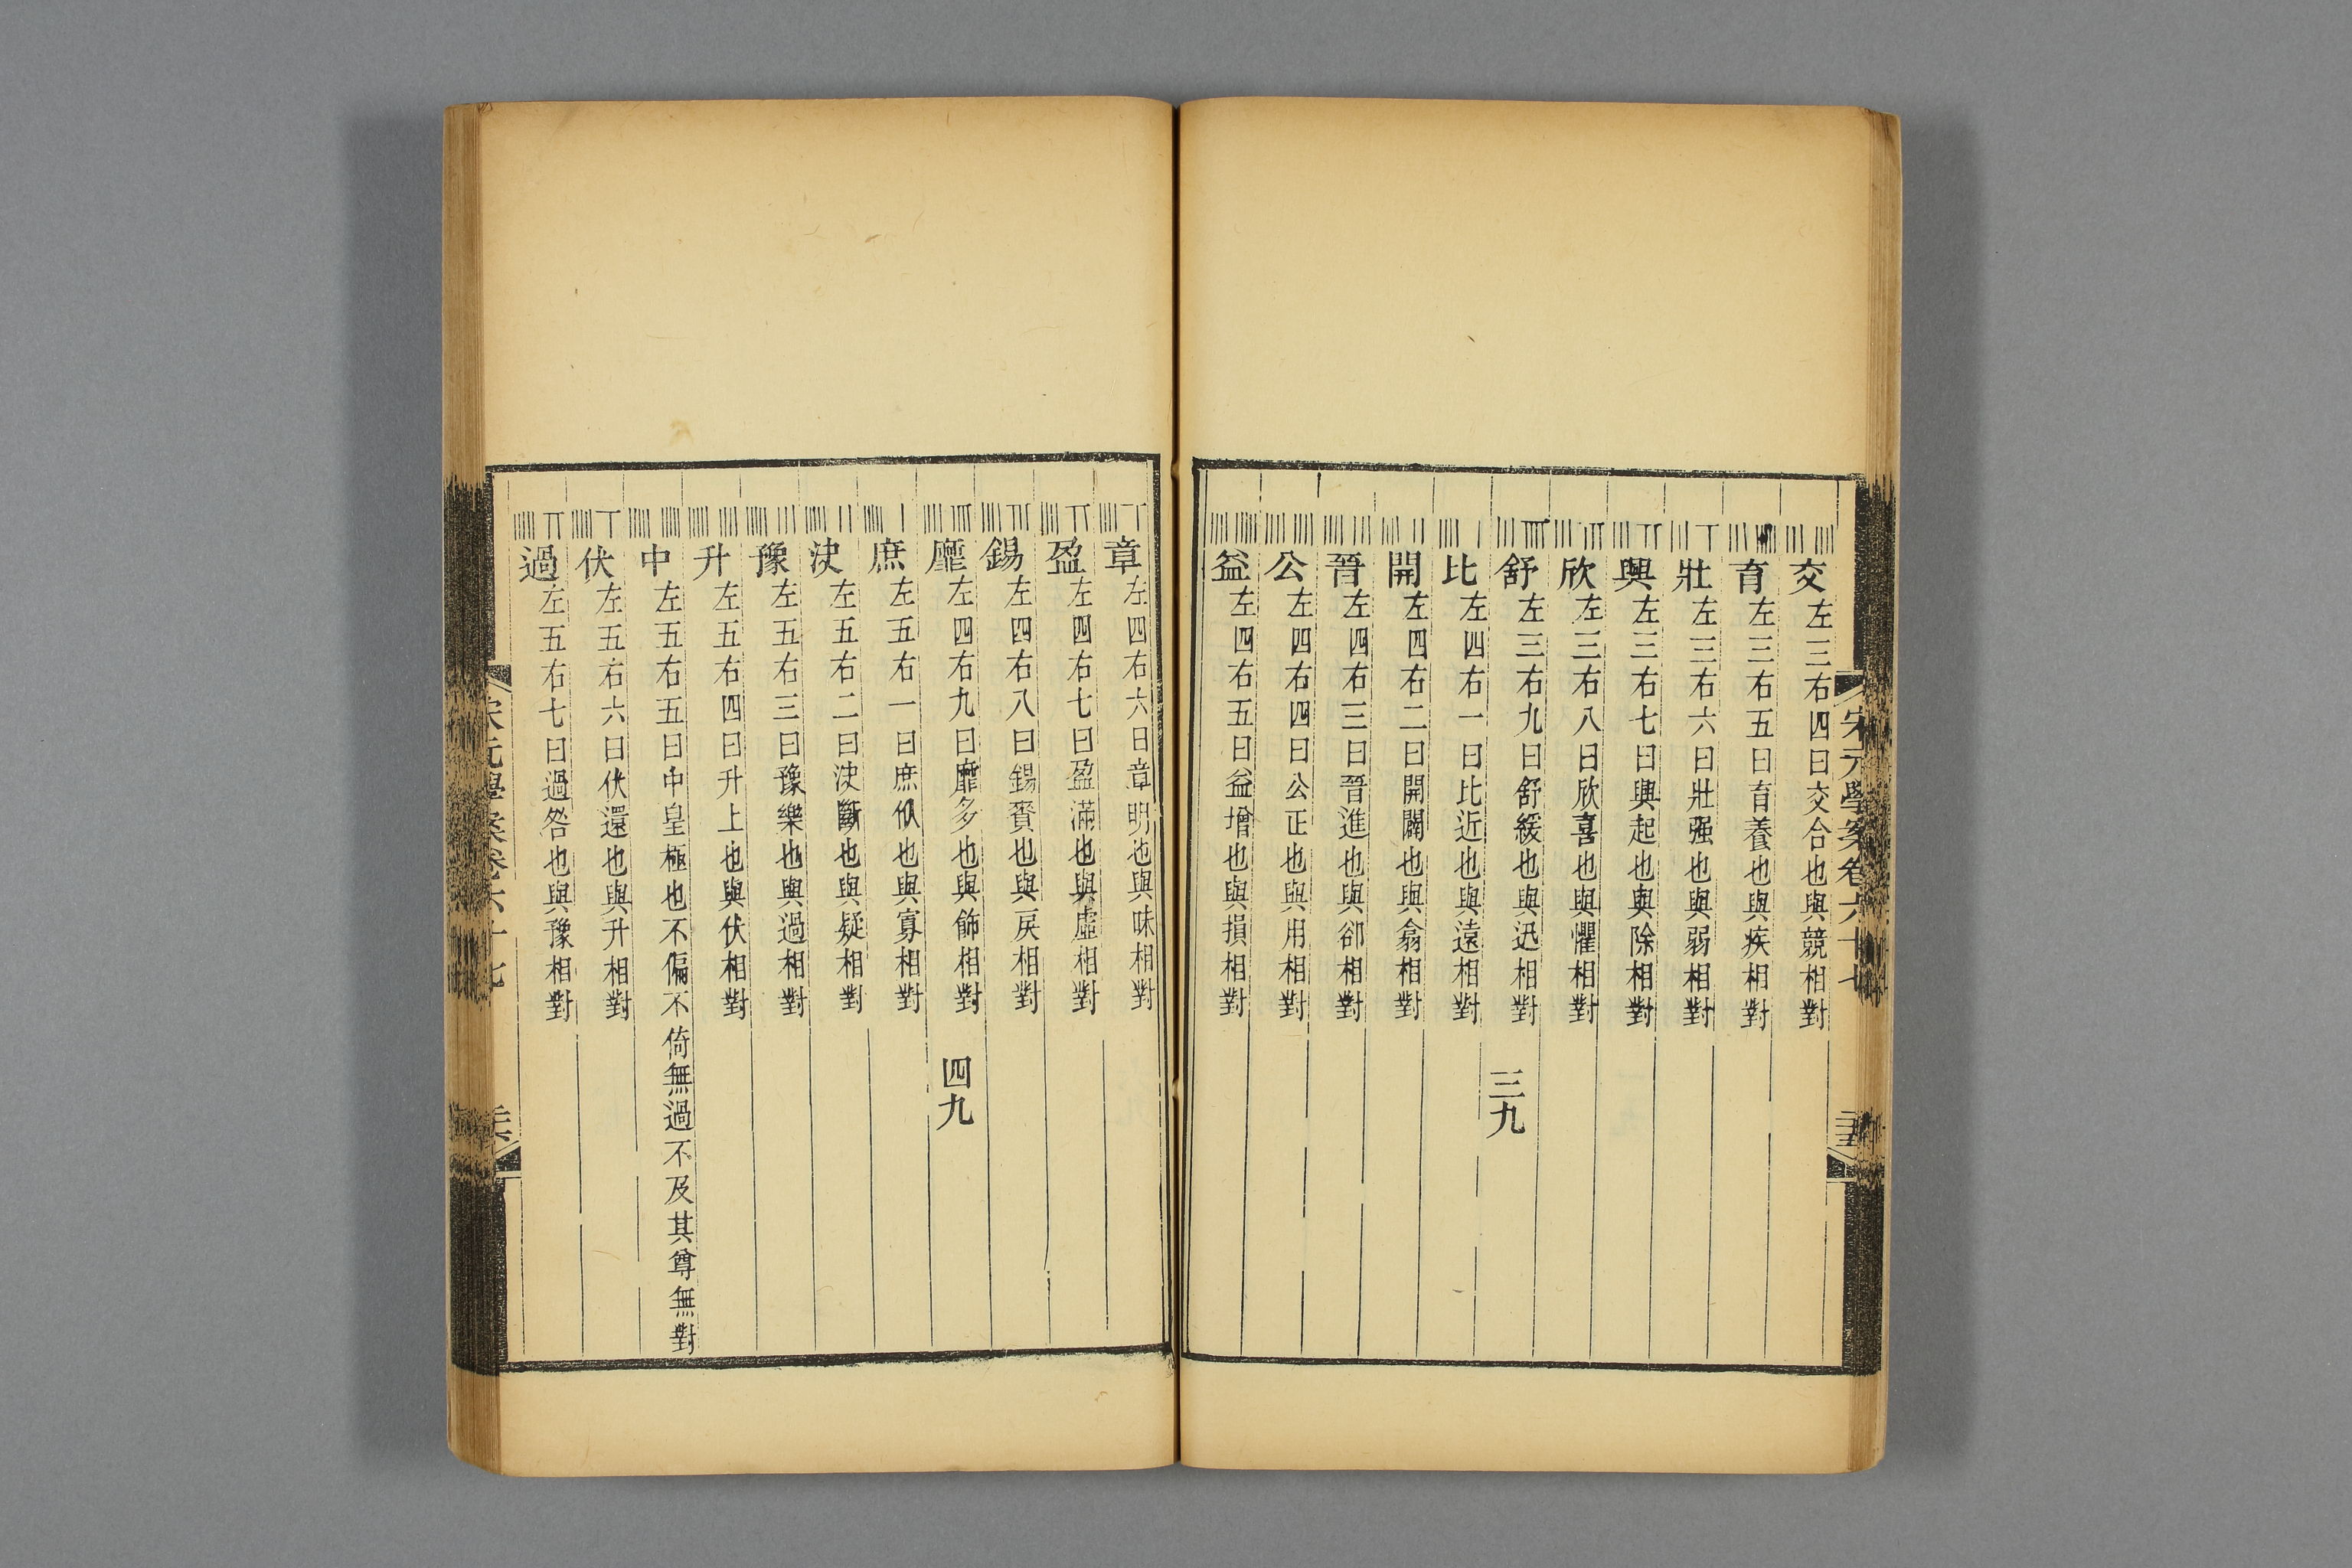 宋元學案卷六十七
交左三右四曰交合也與競相對
育左三右五曰育養也與疾相對
壯左三右六曰壯强也與弱相對
興左三右七曰興起也與除相對
欣左三右八曰欣喜也與懼相對
舒左三右九曰舒緩也與迅相對 三九
比左四右一曰比近也與遠相對
開左四右二曰開闢也與翕相對
晉左四右三曰晉進也與卻相對
公左四右四曰公正也與用相對
益左四右五曰益增也與損相對
章左四右六曰章明也與昧相對
盈左四右七曰盈滿也與虛相對
錫左四右八曰錫賚也與戾相對
靡左四右九曰靡多也與飾相對 四九
庶左五右一曰庶似也與寡相對
決左五右二曰決斷也與疑相對
豫左五右三曰豫樂也與過相對
升左五右四曰升上也與伏相對
中左五右五曰中皇極也不偏不倚無過不及其尊無對
伏左五右六曰伏還也與升相對
過左五右七曰過咎也與豫相對
宋元學案卷六十七